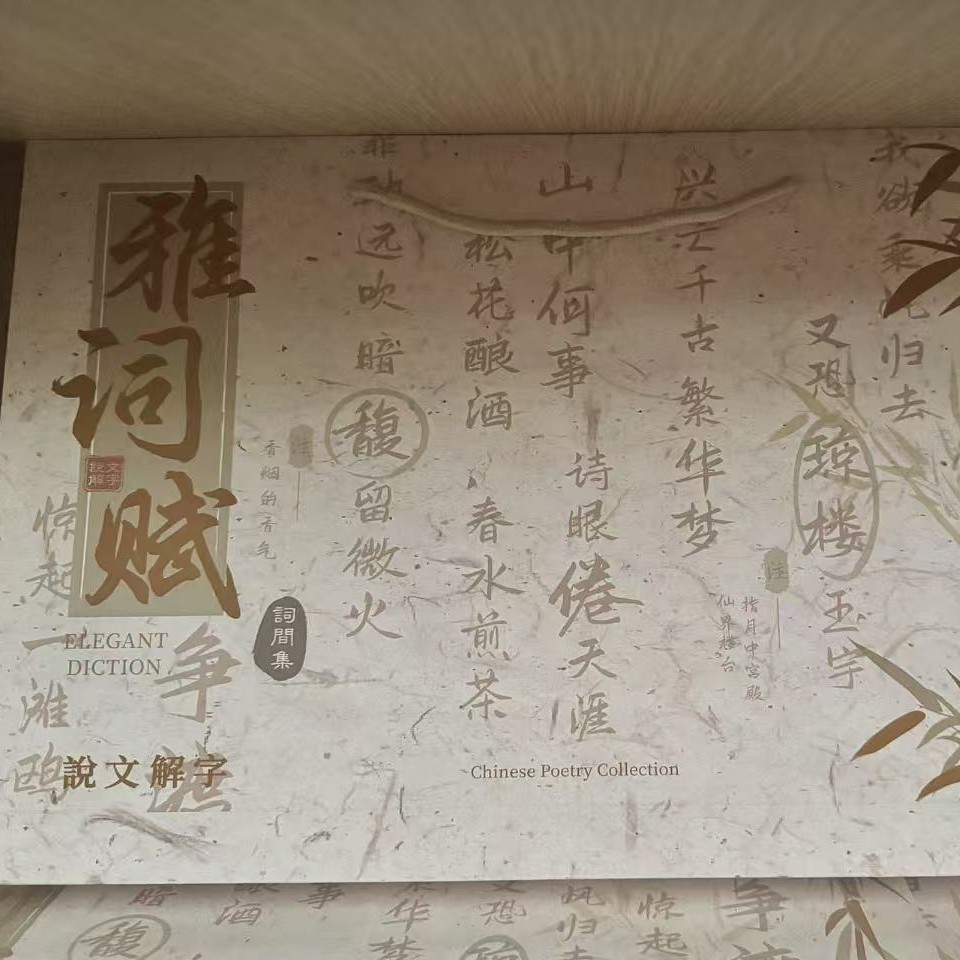 雅词赋
說文解字
ELEGANT
DICTION
說文解字
詞間集
惊起一滩鸥
争
远吹暗馥留微火
注
香烟的香气
松花酿酒
春水煎茶
山中何事
诗眼倦天涯
兴亡千古繁华梦
我欲乘风归去
又恐琼楼玉宇
注
指月中宫殿
仙界楼台
Chinese Poetry Collection
暗
馥
酒
事
华
梦
恐
风归
惊起
争